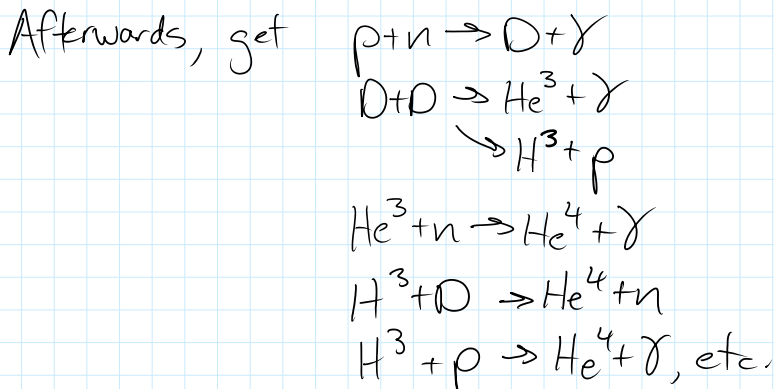 Afterwards, get p+n → D+γ
D+D → He³+γ
↘ H³+p
He³+n → He⁴+γ
H³+D → He⁴+n
H³+p → He⁴+γ, etc.